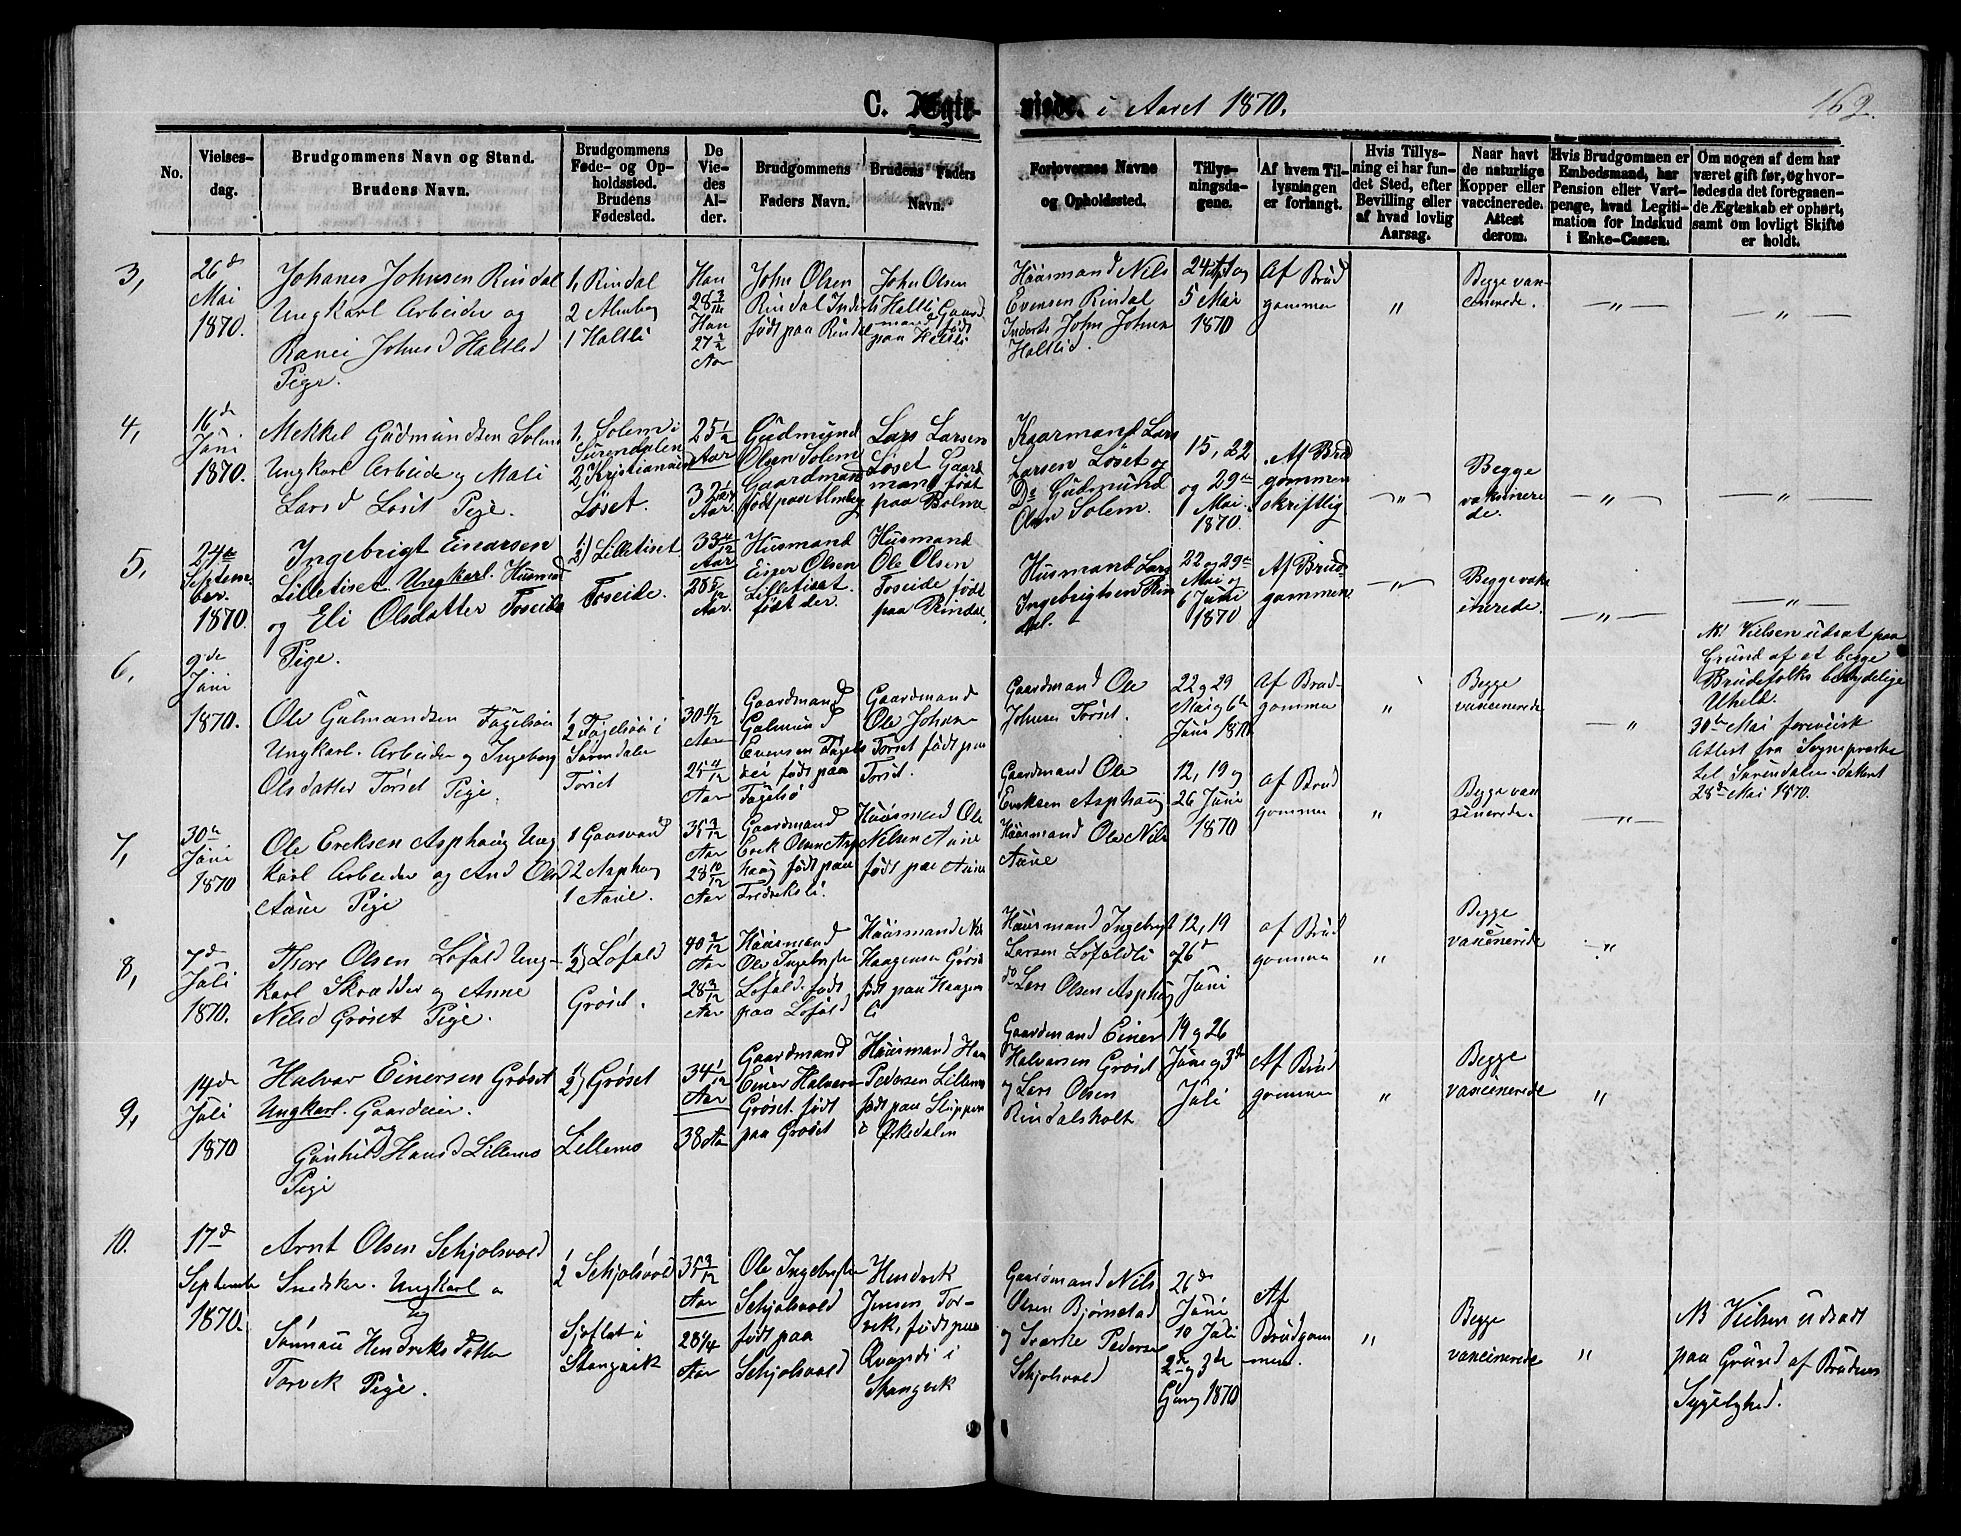 C. Ægte-
viede. i Aaret 1870.
162.
No.
Vielses-
dag.
Brudgommens Navn og Stand.
Brudens Navn.
Brudgommens
Føde- og Op-
holdssted.
Brudens
Fødested.
De
Vie-
des
Al-
der.
Brudgommens
Faders Navn.
Brudens Faders
Navn.
Forlovernes Navne
og Opholdssted.
Tillys-
ningsda-
gene.
Af hvem Til-
lysningen
er forlangt.
Hvis Tillys-
ning ei har fun-
det Sted, efter
Bevilling eller
af hvad lovlig
Aarsag.
Naar havt
de naturlige
Kopper eller
vaccinerede.
Attest
derom.
Hvis Brudgommen er
Embedsmand, har
Pension eller Vart-
penge, hvad Legiti-
mation for Indskud
i Enke-Cassen.
Om nogen af dem har
været gift før, og hvor-
ledes da det foregaaen-
de Ægteskab er ophørt,
samt om lovligt Skifte
er holdt.
3,
26de
Mai
1870.
Johanes Johnsen Rindal
Ungkarl Arbeider og
Ranei Johnsd Haltlid
Pige.
1, Rindal
2 Almberg
1 Haltli
Han
28 3/12
Hun
Aar
John Olsen
født paa Rindal
John Olsen
Haltli Gaard
mand født
paa Haltli
Huusmand Nils
Evensen Rindal
John Johnsen
Haltlid.
5 Mai
1870
Af Brud
gommen
"
Begge vac-
cinerede.
"
"
4,
16de
Juni
1870.
Mekkel Gudmundsen Solem
Ungkarl Arbeide og Mali
Larsd Løset Pige.
1, Solem i
Surendalen
2, Kristiansun
Løset.
25 1/2
Aar
Aar.
Gudmund
Olsen Solem
Gaardmand
født paa Almberg
Lars Larsen
Løset Gaard
mand født
paa Bolme
Gaardmand Lars
Larsen Løset og
Do Gudmund
Olsen Solem.
15, 22
og 29de
Mai
1870.
Af Brud
gommen
skriftlig
"
Begge
vaksinere
de.
"
"
5,
24de
Septem-
ber.
1870.
Ingebrigt Einarsen
Lilletiset Ungkarl. Husmand
og Eli Olsdatter Toseide
Pige.
1) 2) Lilletiset
Toseide.
33 4/12
Aar
28 5/12
Aar.
Husmand
Einer Olsen
Lilletiset
født der.
Husmand
Ole Olsen
Toseide født
paa Rindal
Husmand Lars
Ingebrigtsen Rin
dal.
22 og 29de
Mai og
6 Juni
1870
Af Brud-
gommen
"
Begge vak-
sinerede.
"
"
N.B. Vielsen udsat paa
Grund af et begge
Brudefolks betydelige
Uheld.
6,
9de
Juni
1870.
Ole Gulmandsen Fagelsøi
Ungkarl. Arbeider og Ingeborg
Olsdatter Torset Pige.
1
2 Fagelsøi i
Surendalen
Torset
30 4/12
Aar
25 4/12
Aar
Gaardmand
Gulmund
Evensen Fagels
øi født paa
Fagelsø
Gaardmand
Ole Johnsen
Torset født paa
Torset.
Gaardmand Ole
Johnsen Torset.
22 og 29
Mai og 6te
Juni 1870
Af Brud-
gommen
"
Begge
vaccinerede
"
30te Mai foreviist
Attest fra Sognepræsten
til Surendalen dateret
28de Mai 1870.
7,
30te
Juni
1870
Ole Ereksen Asphaug Ung
karl Arbeider og And Olsd
Aune Pige
1 Gaasvand
2 Asphaug
1 Aune.
35 3/12
Aar
28 10/12
Aar
Gaardmand
Erek Olsen Asp
haug født paa
Fredriksli.
Huusmand Ole
Nilsen Aune
født paa Aune
Gaardmand Ole
Ereksen Asphaug
Huusmand Ole Nils
Aune
12, 19 og
26 Juni
1870
Af Brud
gommen
"
Begge vac
cinerede.
"
8,
7de
Juli
1870.
Thore Olsen Løfald Ung-
karl Skrædder og Anne
Nilsd Grøset Pige.
1) 2) Løfald
Grøset.
40 2/12
Aar
28 3/12
Aar
Huusmand
Ole Ingebrigtsen
Løfald. født
paa Løfald
Huusmand Nils
Haagensen Grøset
født paa Haagen
li
Huusmand Ingebrigt
Larsen Løfaldli
do Lars Olsen Asphaug
12, 19
og 26de
Juni
af Brud
gommen
"
Begge
vaccinerede
"
9,
14de
Juli
1870
Halvar Einersen Grøset
Ungkarl. Gaardeier.
og
Gunhild Hansd Lillemo
Pige
1) 2) Grøset
Lillemo
34 1/12
Aar
38 Aar
Gaardmand
Einer Halvors
Grøset født
paa Grøset
Huusmand Hans
Pedersen Lillemo
født paa Slippen
i Ørkedalen
Gaardmand Einer
Halvorsen Grøset
og Lars Olsen
Rindalsholt
19 og 26
Juni og 3de
Juli
Af Brud
gommen
"
Begge
vaccinerede
"
10.
17de
September
1870.
Arnt Olsen Schjølsvold
Snedker. Ungkarl
og
Sønnau Hendriksdatter
Torvek Pige.
1
2 Schjølsvold
Sjøflot i
Stangvik
35 9/12
Aar
28 1/4
Aar
Ole Ingebrigtsen
Schjølsvold
født paa
Schjølsvold
Hendrek
Jensen Tor-
vek, født paa
Qvandi i
Stangvek
Gaardmand Nils
Olsen Bjørnstad
og Sværke Pedersen
Schjølsvold
26de
Juni
10 Juli
2de og 3de
Gang 1870
Af
Brudgom
men.
"
Begge
vaccinerede
"
NB Vielsen udsadt
paa Grund af Brudens
Sygelighed.